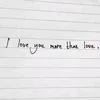 I love you more than love.